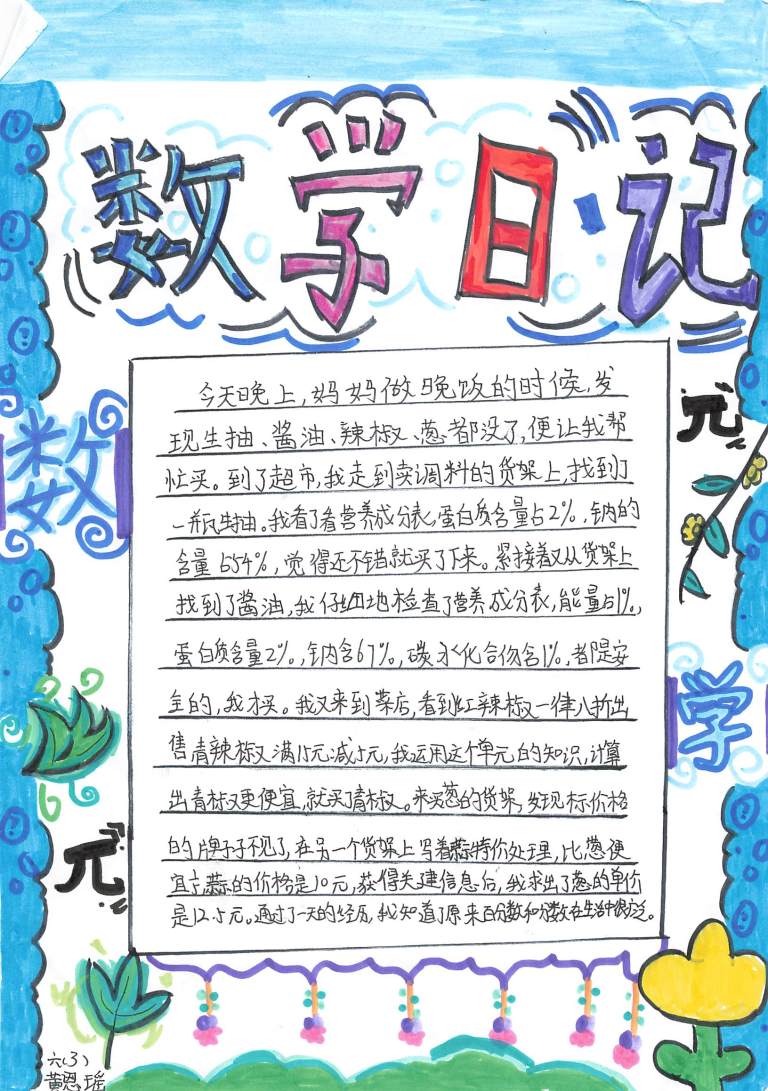 数学日记
今天晚上,妈妈做晚饭的时候,发
现生抽、酱油、辣椒、葱都没了,便让我帮
忙买。到了超市,我走到卖调料的货架上,找到了
一瓶生抽。我看了看营养成分表,蛋白质含量占2%,钠的
含量654%,觉得还不错就买了下来。紧接着又从货架上
找到了酱油,我仔细地检查了营养成分表,能量占1%,
蛋白质含量2%,钠含67%,碳水化合物含1%,都是安
全的,我才买。我又来到菜店,看到红辣椒一律八折出
售青辣椒又满15元减5元,我运用这个单元的知识,计算
出青椒更便宜,就买了青椒。来买葱的货架,发现标价格
的牌子不见了,在另一个货架上写着蒜特价处理,比葱便
宜蒜的价格是10元,获得关建信息后,我求出了葱的单价
是12.5元。通过了一天的经历,我知道了原来百分数和分数在生活中很广泛。
数
元
学
元
六(3)
黄恩瑶